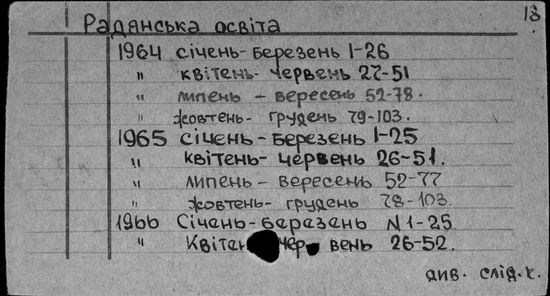 13
Радянська освіта
1964 січень-березень 1-26
" квітень-червень 27-51
" липень - вересень 52-78.
" жовтень- грудень 79-103.
1965 січень-березень 1-25
" квітень- червень 26-51.
" липень - вересень 52-77
" жовтень- грудень 78-103.
1966 Січень-березень N 1-25
" Квітен чер вень 26-52.
див. слід. к.